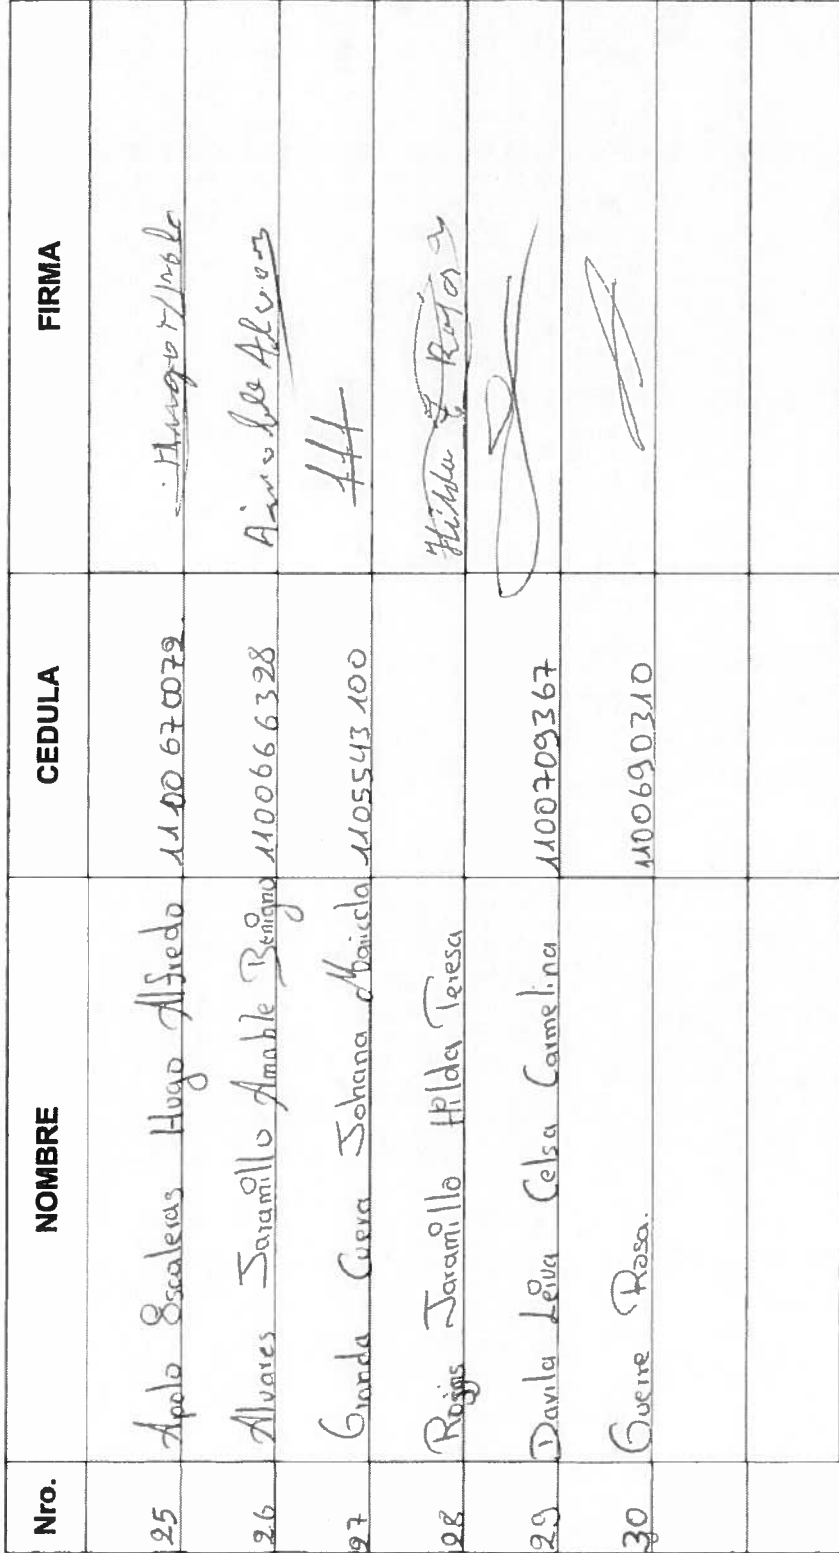 Nro. NOMBRE CEDULA FIRMA
25 Apolo Escaleras Hugo Alfredo 1100670079
26 Alvares Jaramillo Amable Benigno 1100666328 Amable Alvares
27 Granda Cueva Johana Maricela 1105543100
28 Rojas Jaramillo Hilda Teresa Hilda T Rojas
29 Davila Leiva Celsa Carmelina 1100709367
30 Guerre Rosa. 1100690310